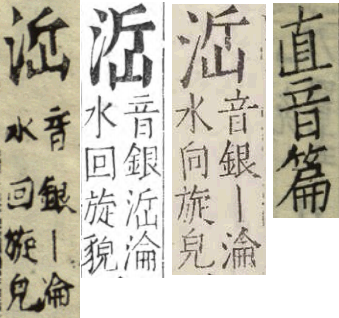 直音篇
音銀丨淪
水向旋皃
音銀淪
水回旋貌
音銀丨淪
水回旋皃